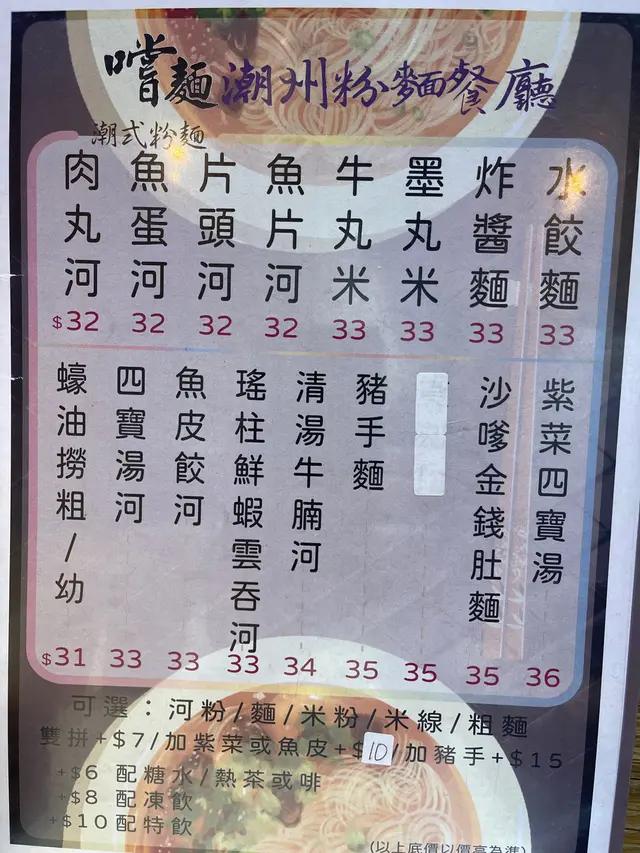 嚐麵潮州粉麵餐廳
潮式粉麵
肉丸河
$32
魚蛋河
32
片頭河
32
魚片河
32
牛丸米
33
墨丸米
33
炸醬麵
33
水餃麵
33
蠔油撈粗/幼
$31
四寶湯河
33
魚皮餃河
33
瑤柱鮮蝦雲吞河
33
清湯牛腩河
34
豬手麵
35
35
沙嗲金錢肚麵
35
紫菜四寶湯
36
可選：河粉/麵/米粉/米線/粗麵
雙拼+$7/加紫菜或魚皮+$10/加豬手+$15
+$6 配糖水/熱茶或啡
+$8 配凍飲
+$10配特飲
(以上底價以價高為準)